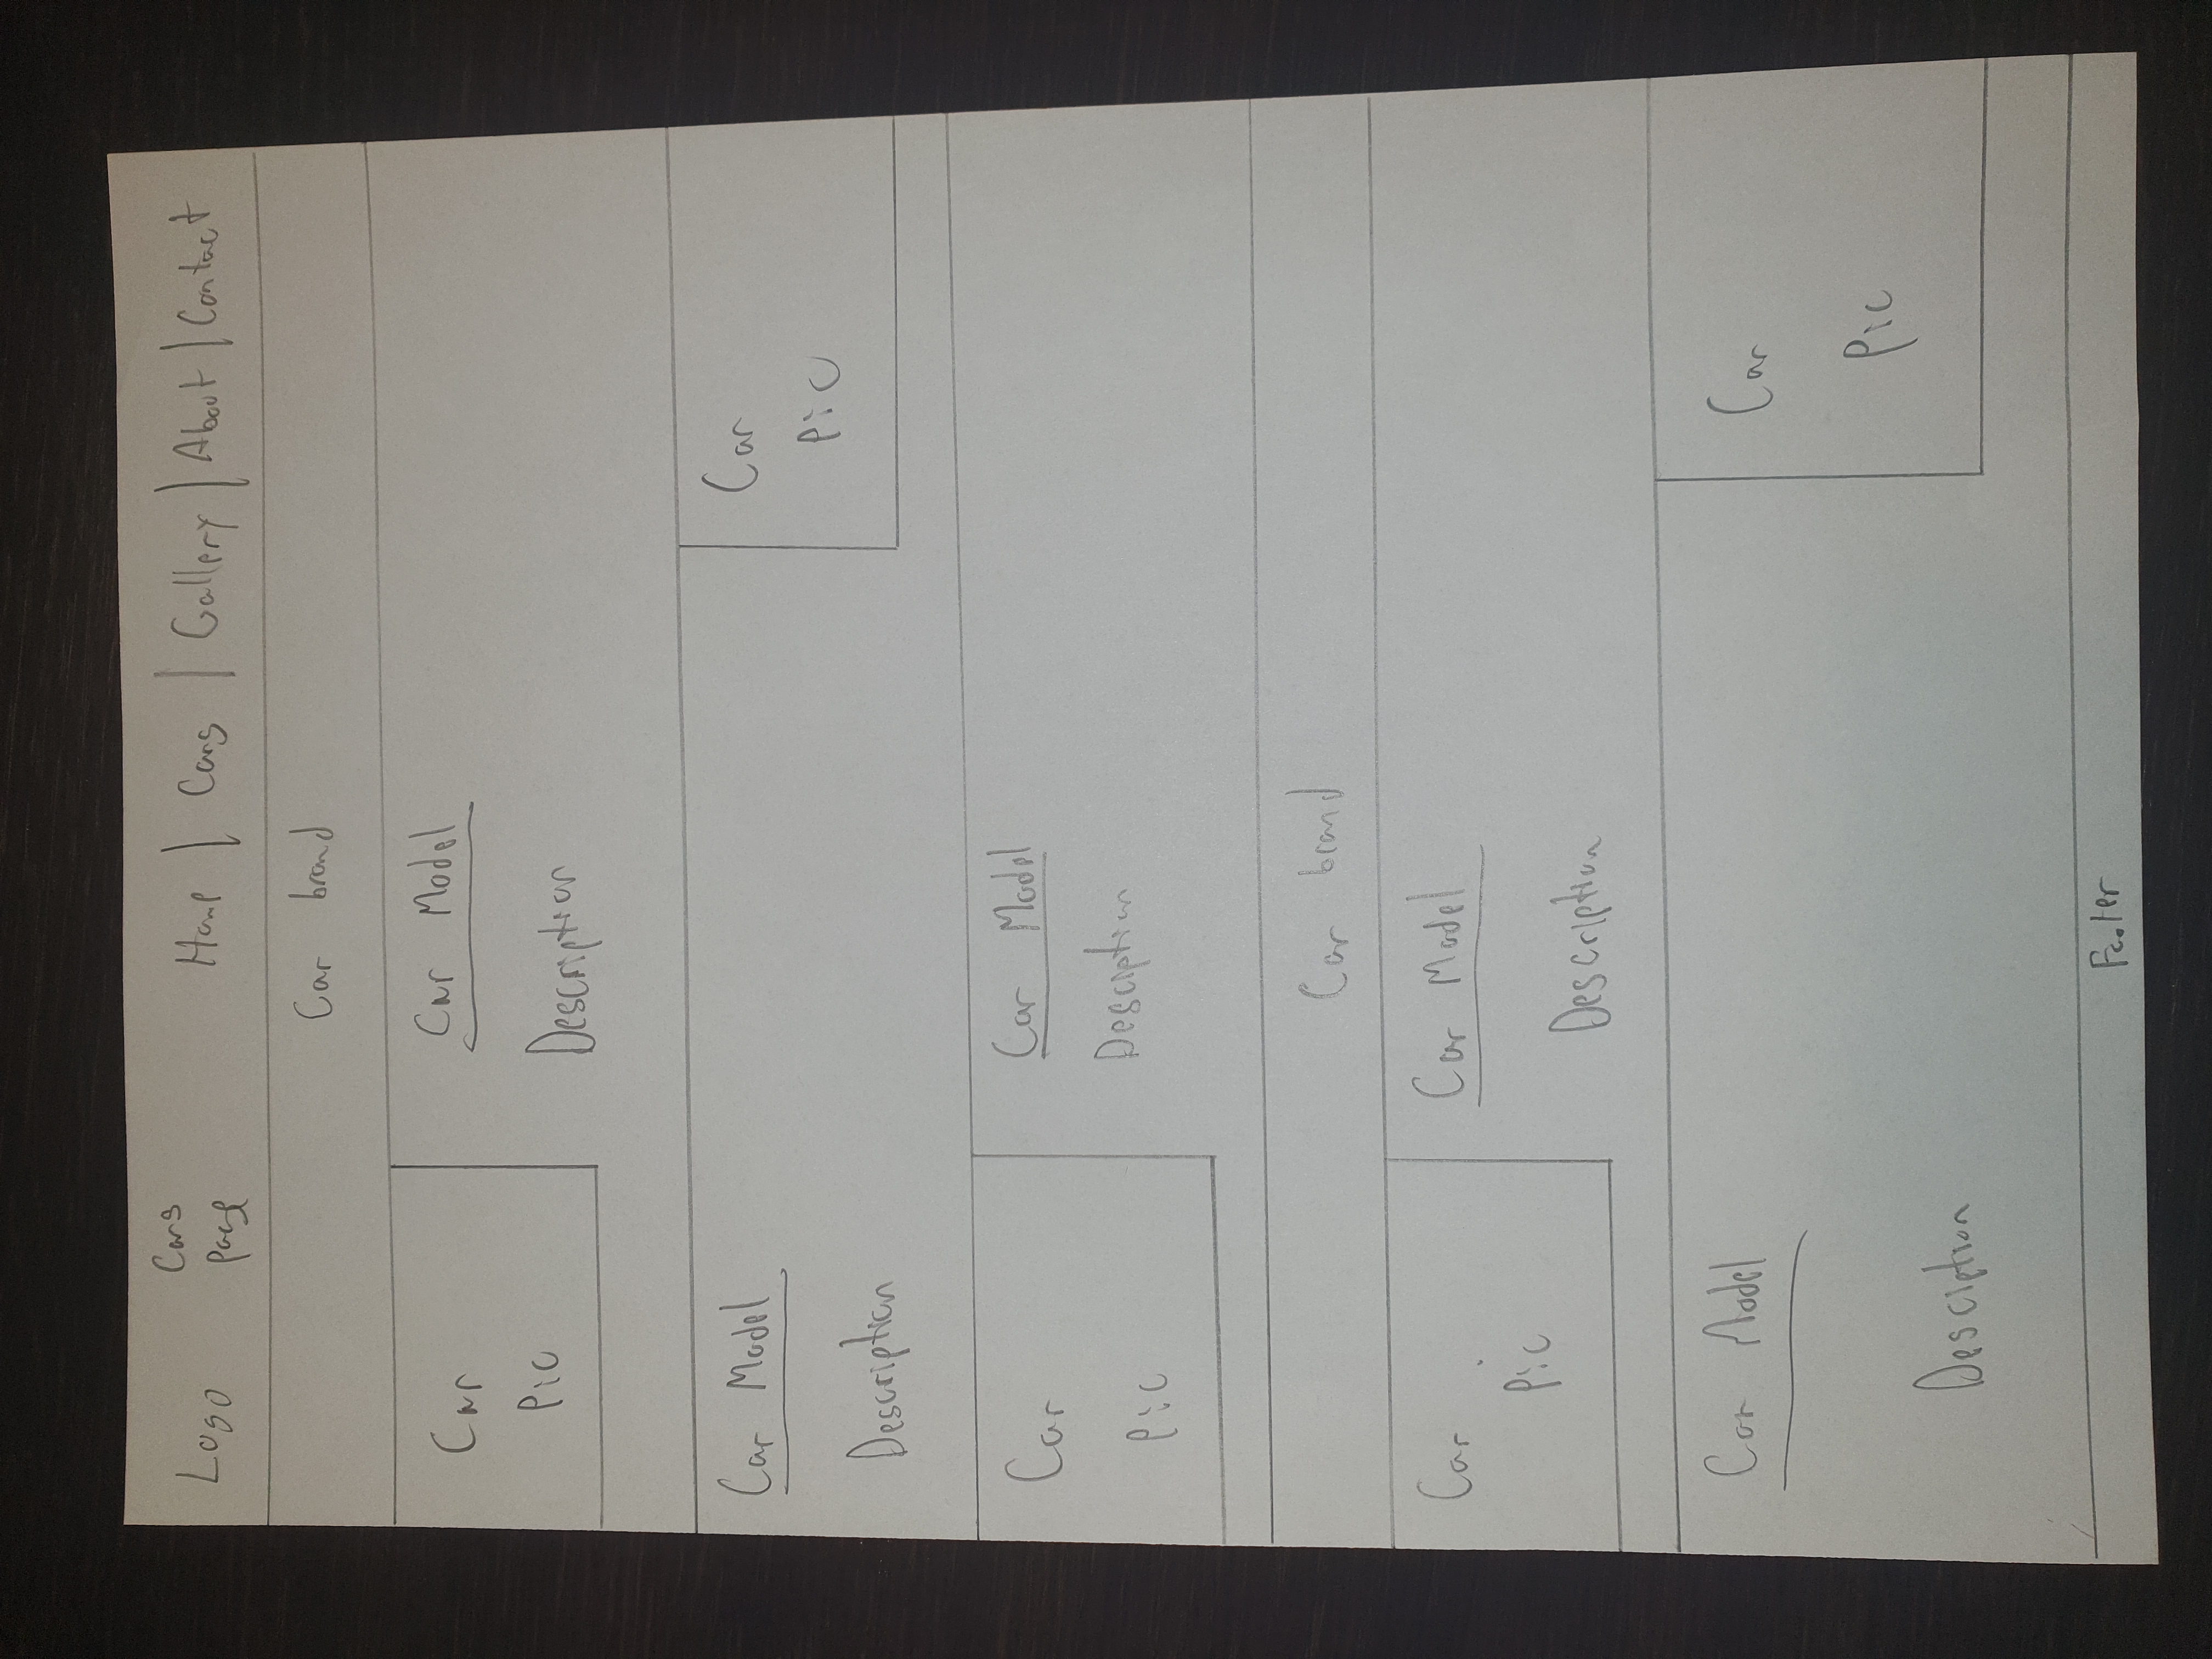 Logo
Cars
page
Home | Cars | Gallery | About | Contact
Car brand
Car
Pic
Car Model
Description
Car Model
Description
Car
Pic
Car
Pic
Car Model
Desciption
Car brand
Car
Pic
Car Model
Description
Car Model
Desciption
Car
Pic
Footer